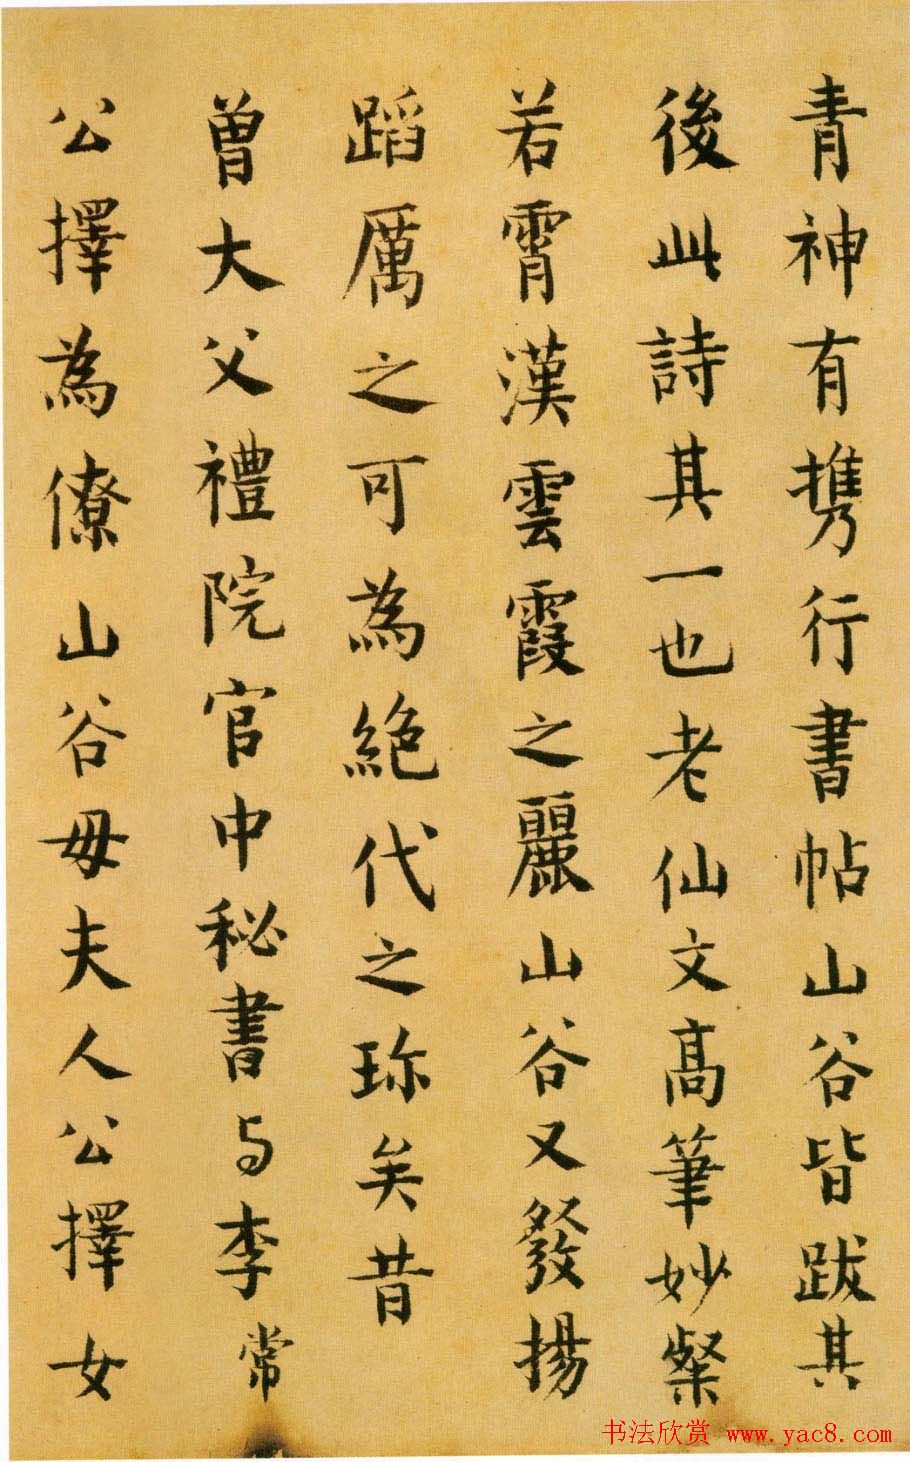 青神有攜行書帖山谷皆跋其
後此詩其一也老仙文高筆妙粲
若霄漢雲霞之麗山谷又發揚
蹈厲之可為絕代之珎矣昔
曾大父禮院官中秘書与李常
公擇為僚山谷母夫人公擇女
书法欣赏 www.yac8.com